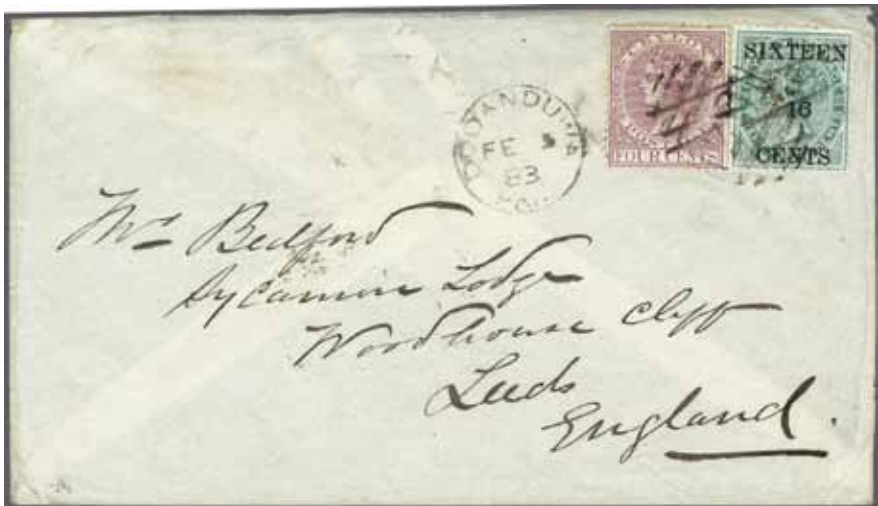 CEYLON
POSTAGE
FOUR CENTS
SIXTEEN
16
CENTS
FE
83
Mrs Bedford
Sycamore Lodge
Woodhouse Cliff
Leeds
England.